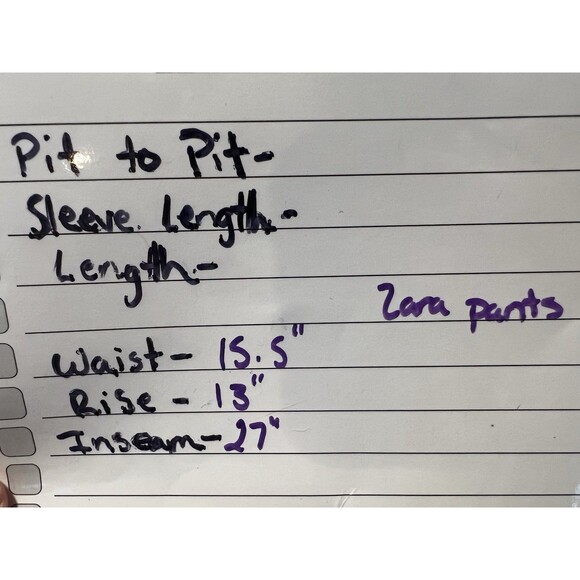 Pit to Pit-
Sleeve Length-
Length-
Zara pants
Waist- 15.5"
Rise - 13"
Inseam- 27"